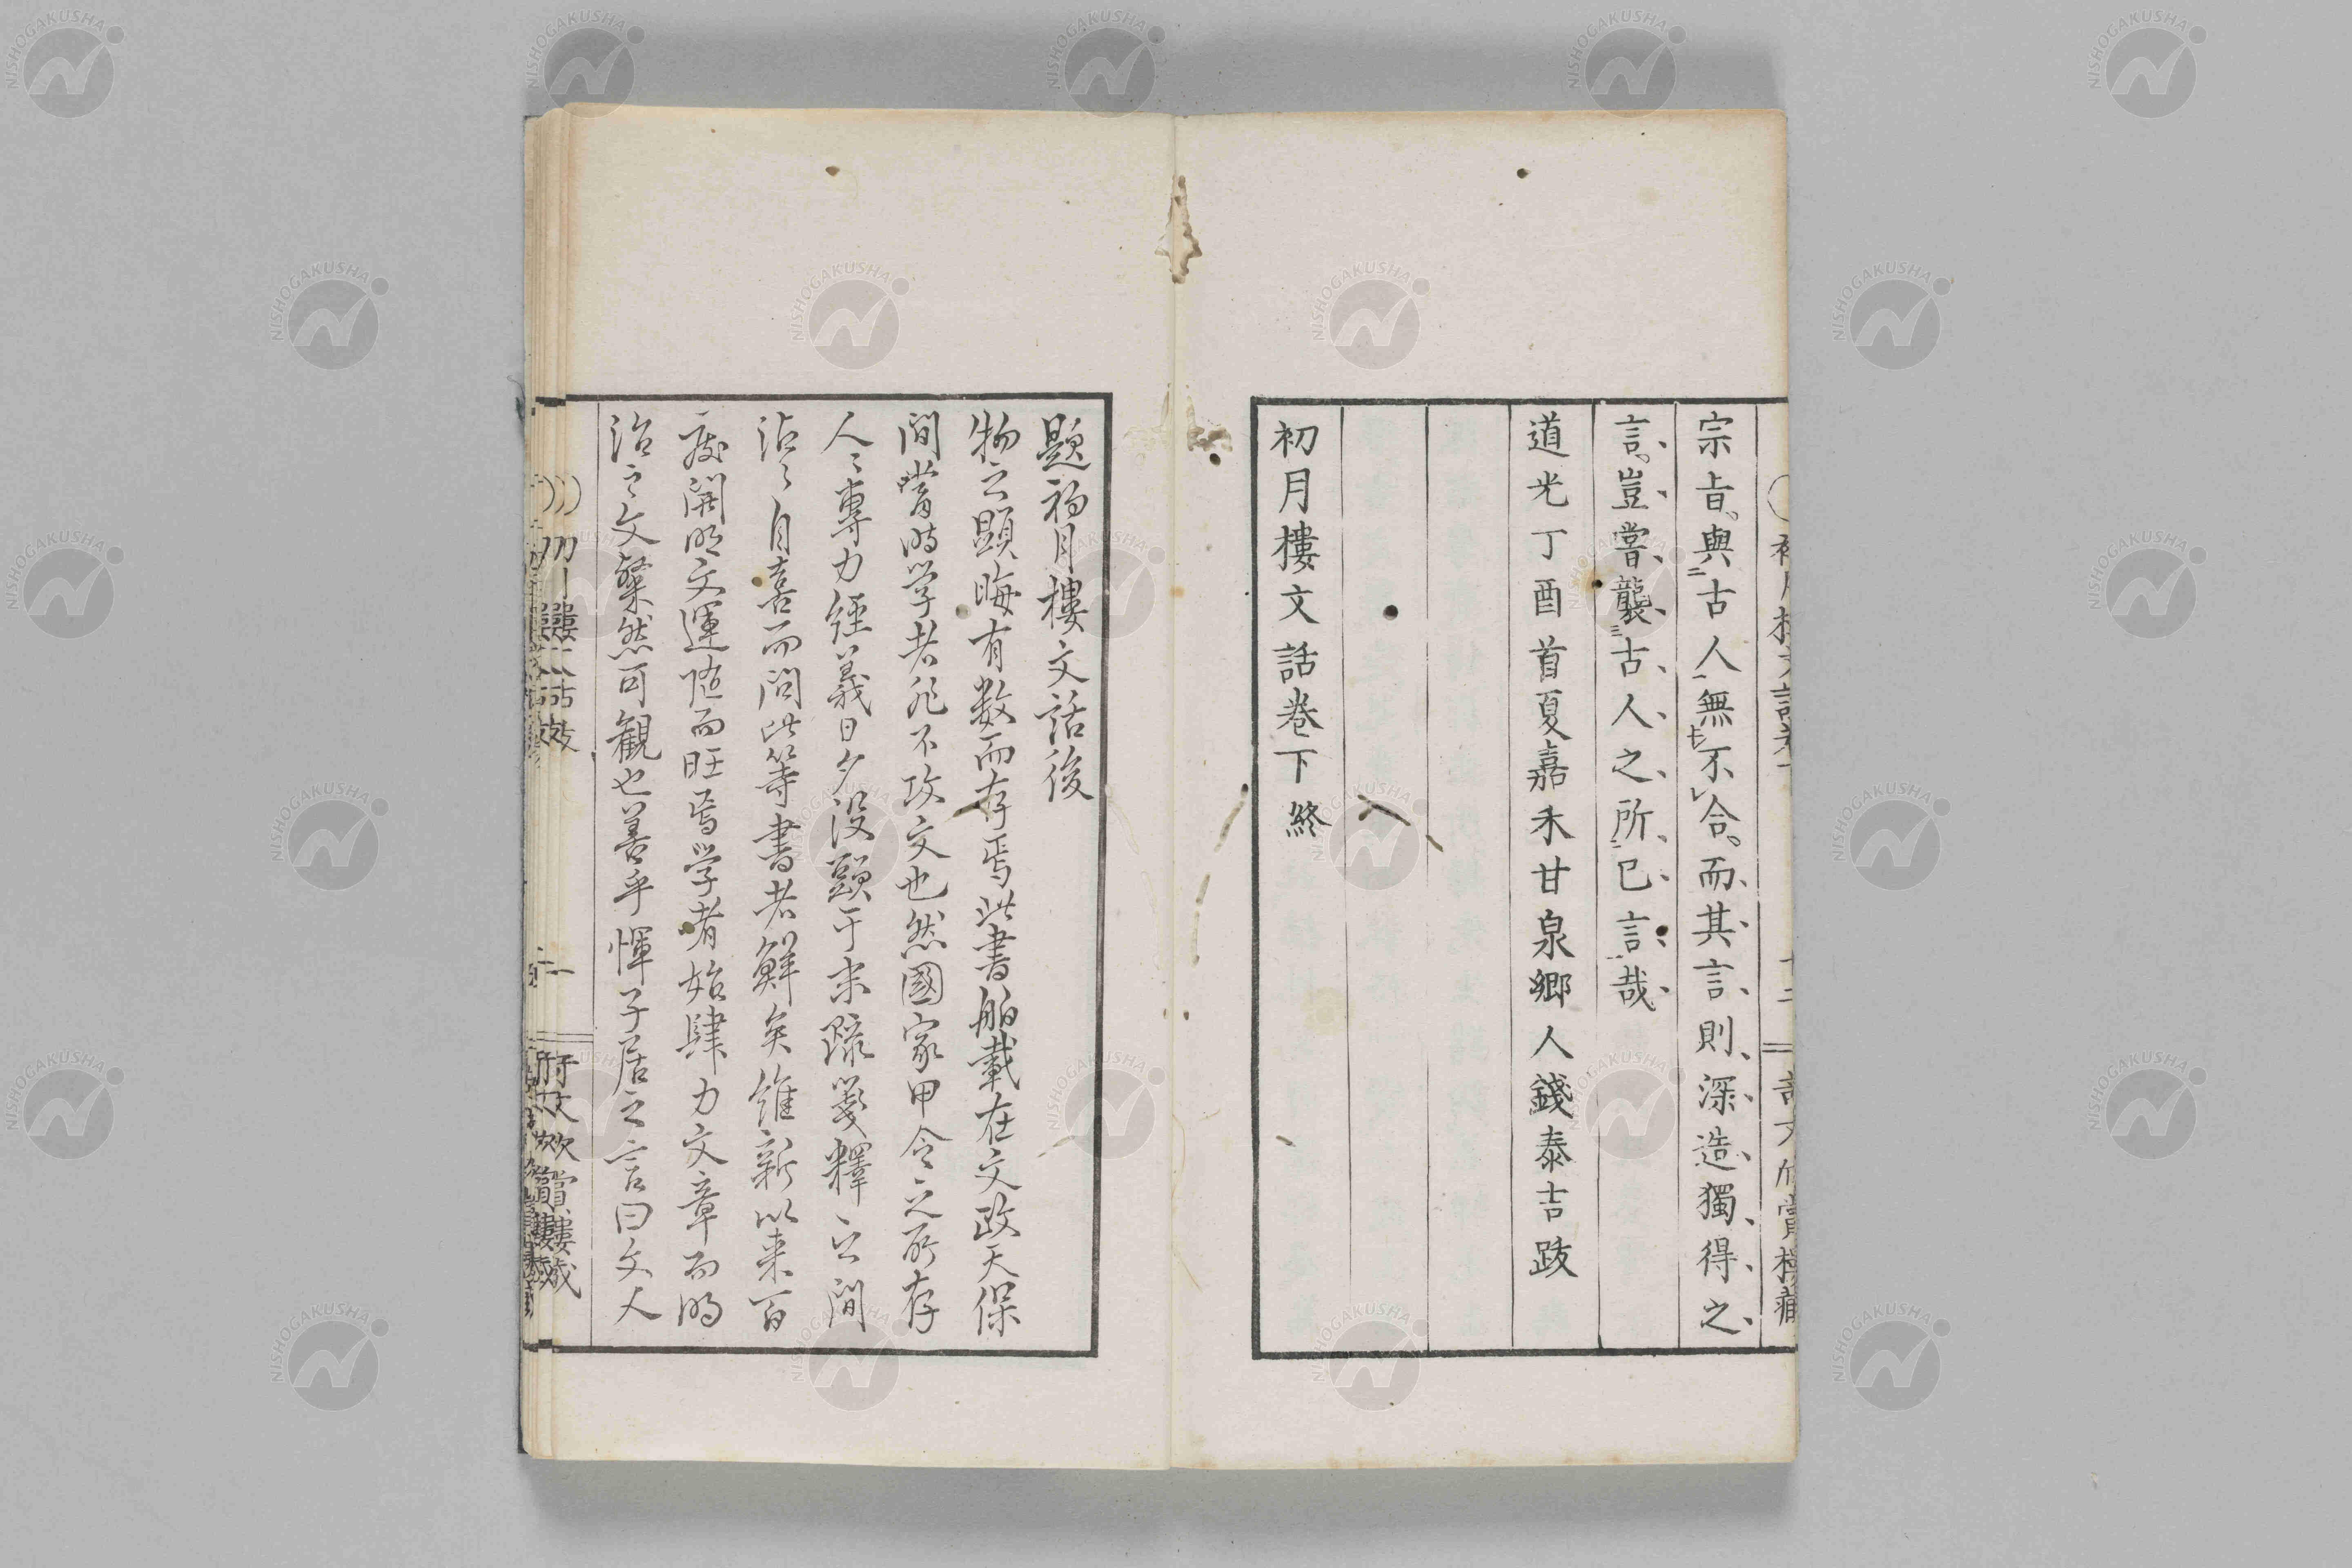 宗旨。與古人無不合。而其言則深造獨得之
言。豈嘗襲古人之所已言哉
道光丁酉首夏嘉禾甘泉郷人錢泰吉跋
初月樓文話卷下終
題初月樓文話後
物之顯晦有数而存焉此書舶載在文政天保
間當時学者非不攻文也然國家甲令之所存
人〻專力經義日夕没頭于末疏箋釋之間
沾〻自喜而問此等書者鮮矣維新以来百
度開明文運随而旺焉学者始肆力文章而明
治之文粲然可観也善乎惲子居之言曰文人
NISHOGAKUSHA